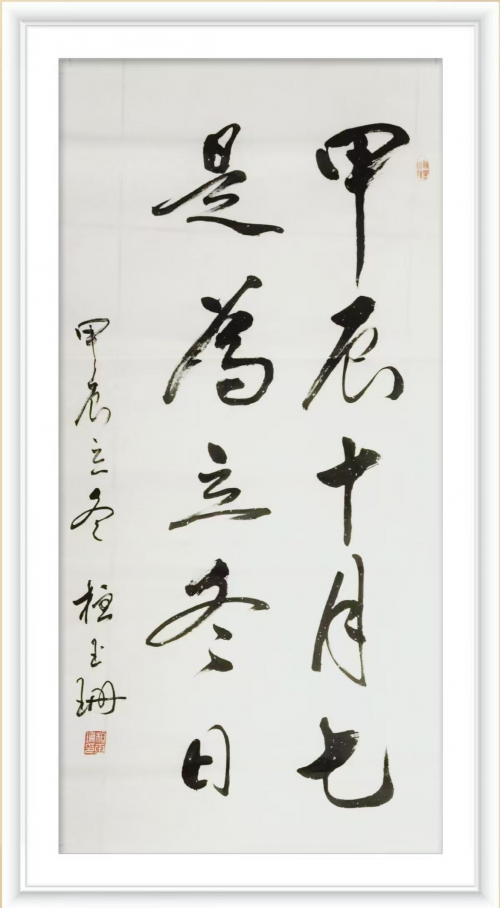 甲辰十月七
是為立冬日
甲辰立冬 桂玉珊